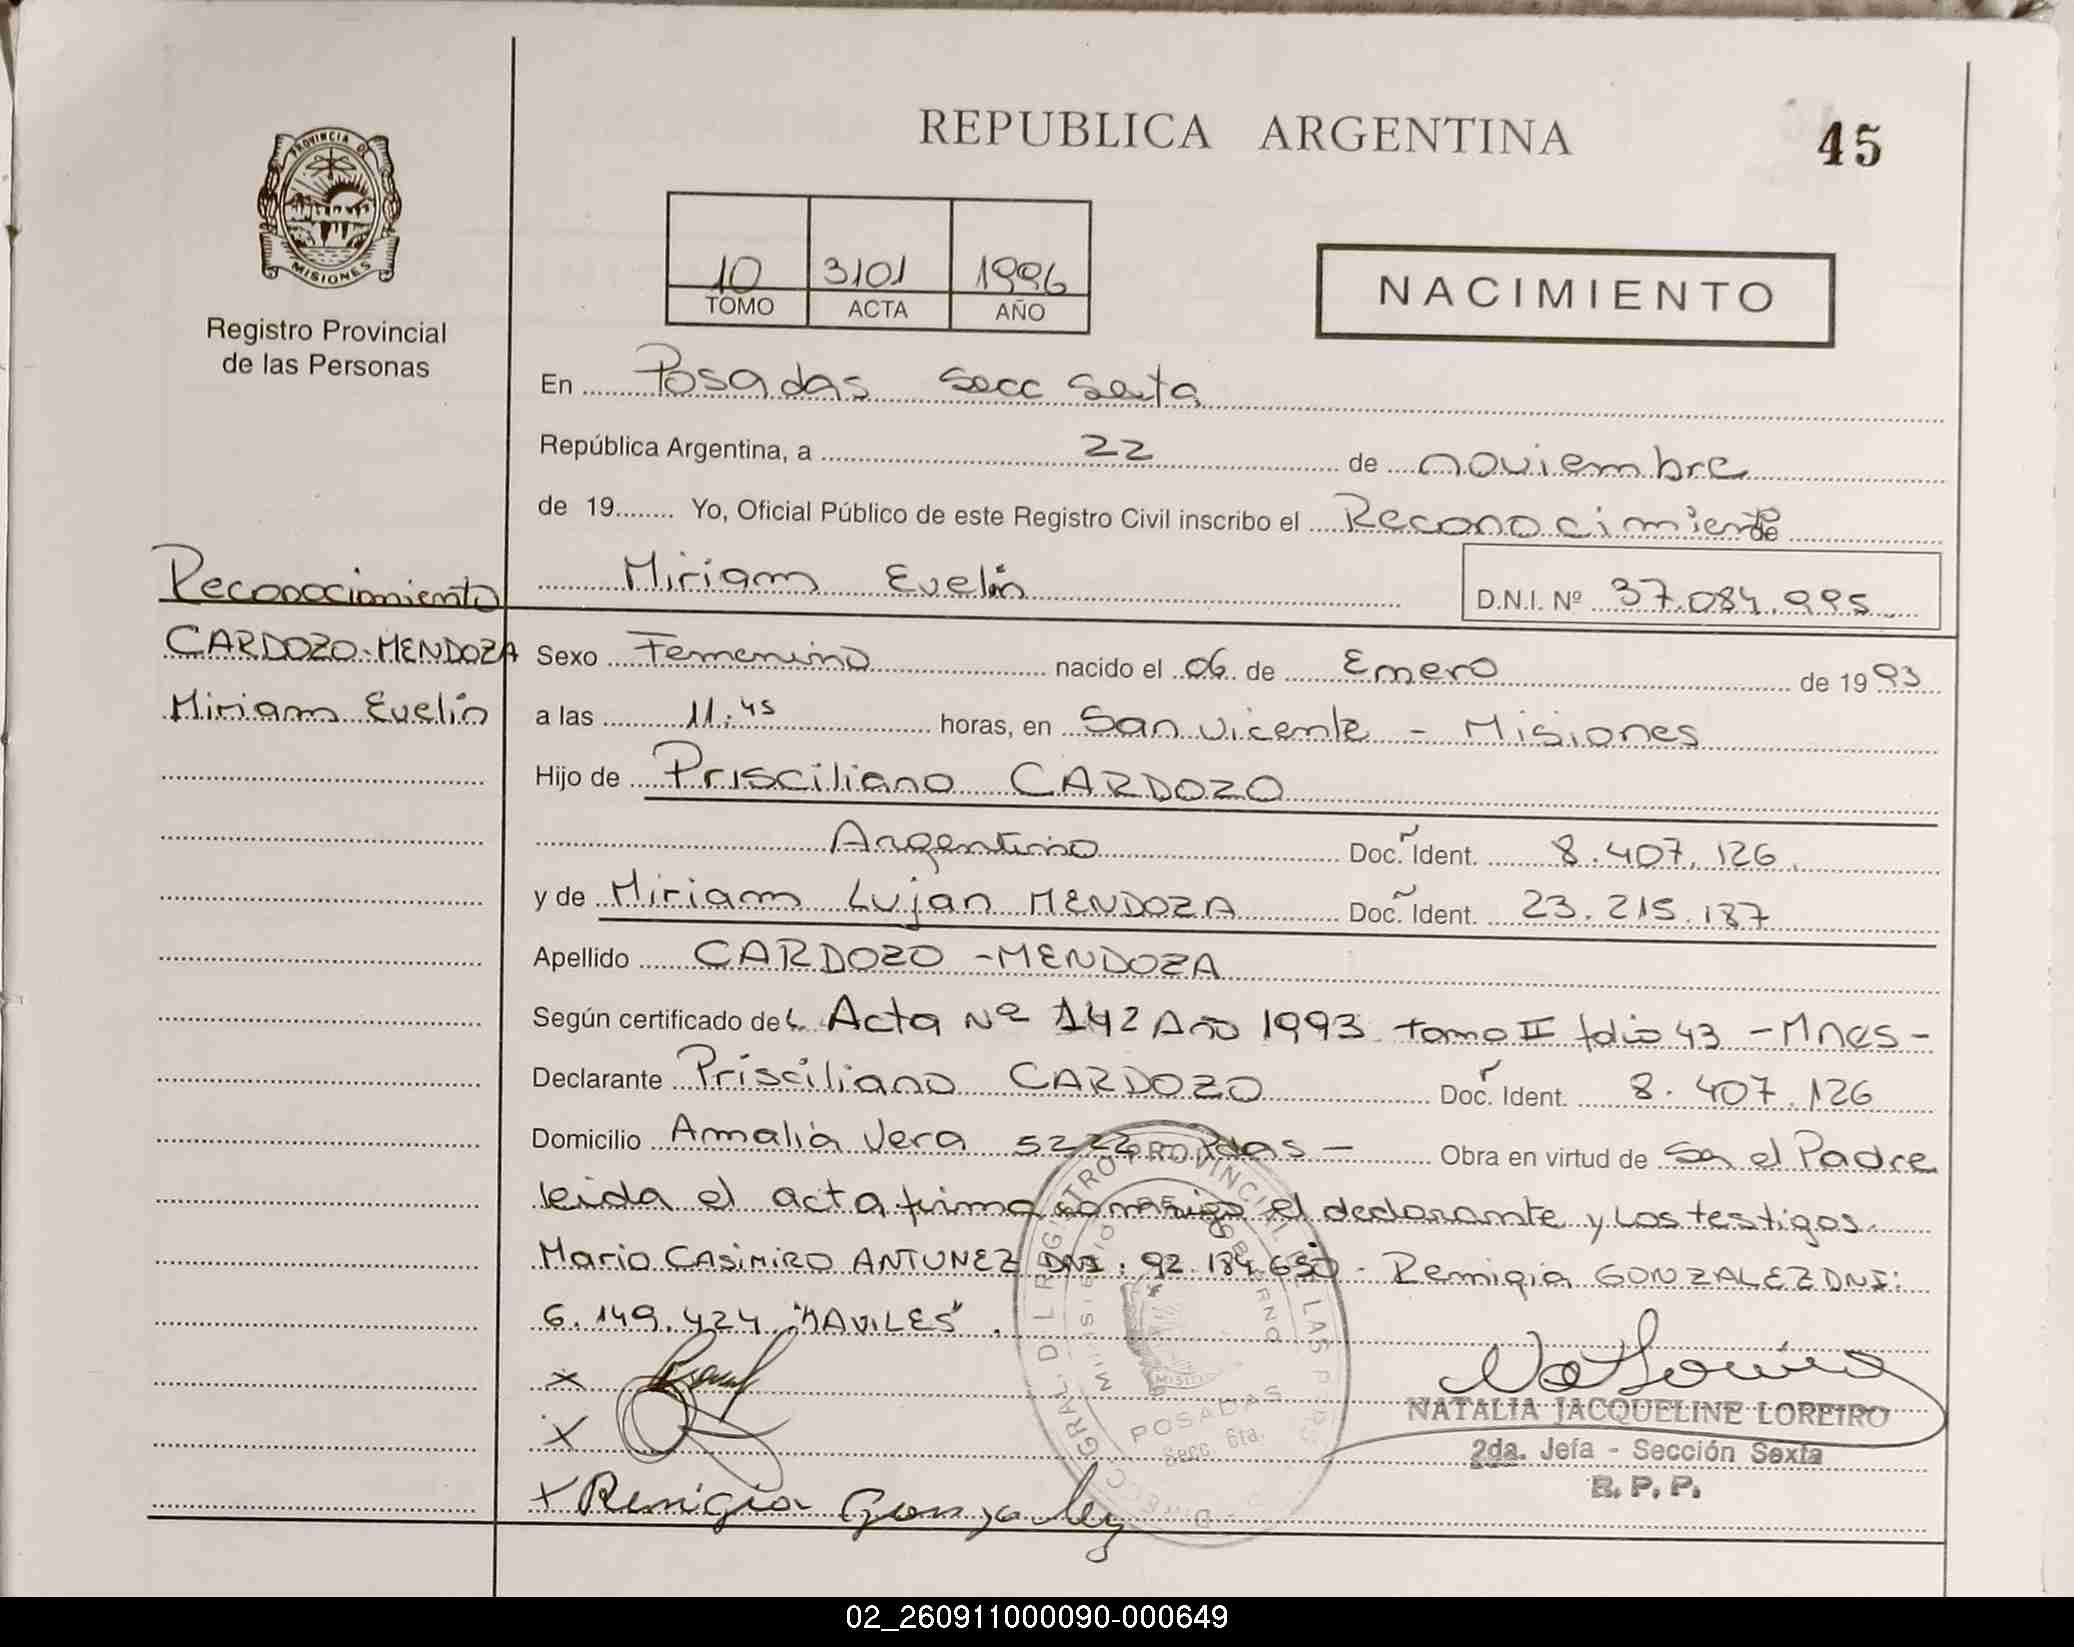 REPUBLICA ARGENTINA
45
PROVINCIA DE
MISIONES
Registro Provincial
de las Personas
10 3101 1996
TOMO ACTA AÑO
NACIMIENTO
En Posadas Secc Sexta
República Argentina, a 22 de noviembre
de 19........ Yo, Oficial Público de este Registro Civil inscribo el Reconocimiento de
Miriam Evelin D.N.I. Nº 37.084.995
Reconocimiento
CARDOZO-MENDOZA
Miriam Evelin
Sexo Femenino nacido el 06 de Enero de 1993
a las 11:45 horas, en San Vicente - Misiones
Hijo de Prisciliano CARDOZO
Argentino Doc. Ident. 8.407.126.
y de Miriam Lujan MENDOZA Doc. Ident. 23.215.187
Apellido CARDOZO -MENDOZA
Según certificado de Acta Nº 142 Año 1993 tomo II folio 43 -Mnes-
Declarante Prisciliano CARDOZO Doc. Ident. 8.407.126
Domicilio Amalia Vera 5222 Pdas - Obra en virtud de Ser el Padre
leida el acta firma conmigo el declarante y los testigos
Mario CASIMIRO ANTUNEZ DNI: 92.184.650 - Remigia GONZALEZ DNI:
6.149.424 "AVILES".
X
X
X Remigia Gonzalez
DIRECC. GRAL. DEL REGISTRO PROVINCIAL DE LAS
MINISTERIO DE GOBIERNO
MISIONES
POSADAS
Secc. 6ta.
NATALIA JACQUELINE LOREIRO
2da. Jefa - Sección Sexta
R. P. P.
02_260911000090-000649